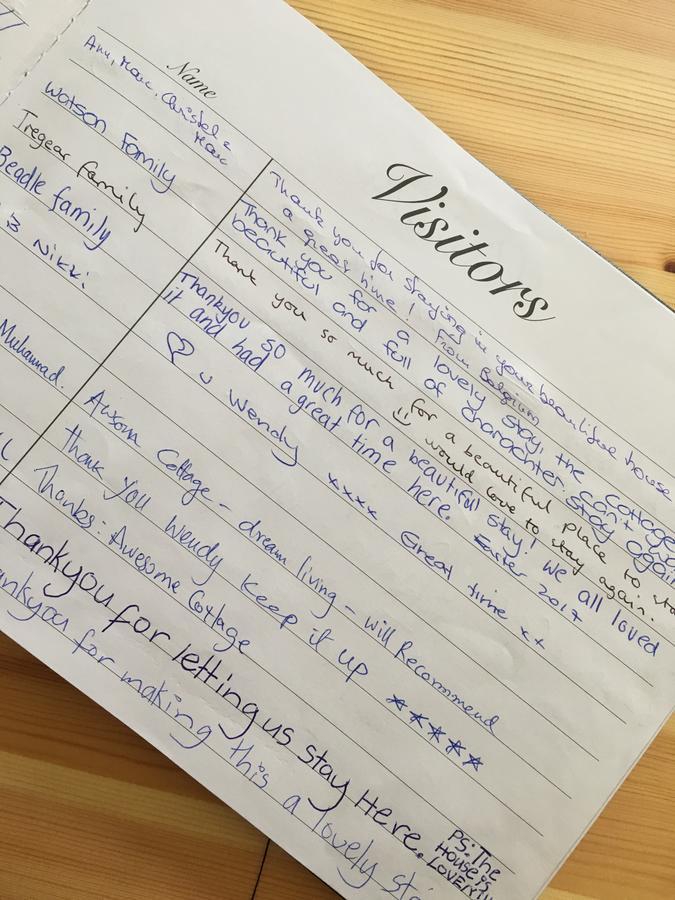 Name
Visitors
Ann, Marc, Christel &
Marc
Thank you for staying in your beautiful house
a great time! From Belgium
Watson Family
Thank you for a lovely stay, the cottage
beautiful and full of charachter. can't
stay again
Tregear family
Thank you so much for a beautiful place to
would love to stay again.
Beadle family
Thankyou so much for a beautiful stay! We all loved
it and had a great time here. Easter 2017
Nikki
♡ U Wendy xxxx Great time xx
Muhammad.
Awsom Cottage - dream living - will Recommend
Thank You Wendy Keep it up *****
Thanks: Awesome Cottage
Thankyou for letting us stay Here.
PS: The
House is
LOVELY!!
for making this a lovely